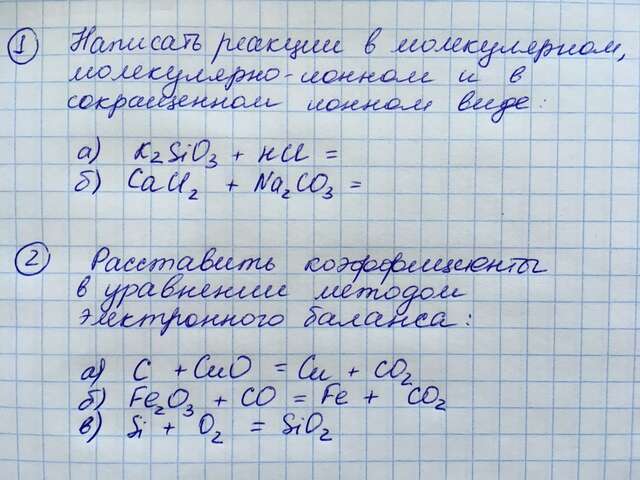 1 Написать реакции в молекулярном,
молекулярно-ионном и в
сокращенном ионном виде:
а) K₂SiO₃ + HCl =
б) CaCl₂ + Na₂CO₃ =
2 Расставить коэффициенты
в уравнении методом
электронного баланса:
а) C + CuO = Cu + CO₂
б) Fe₂O₃ + CO = Fe + CO₂
в) Si + O₂ = SiO₂